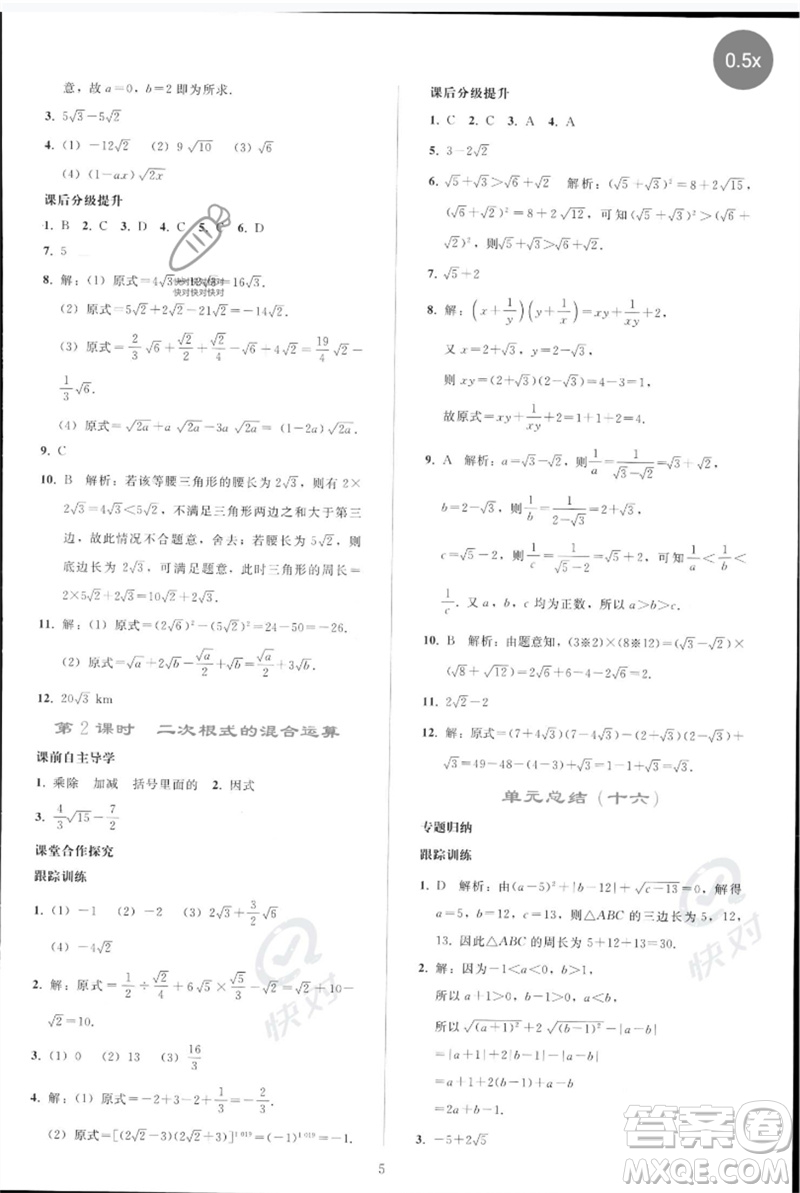 0.5x
意,故 a=0,b=2 即为所求.
3. 5√3-5√2
4. (1) -12√2 (2) 9√10 (3) √6
(4) (1-ax)√2x
课后分级提升
1. B 2. C 3. D 4. C 5. C 6. D
7. 5
8. 解:(1) 原式=4√3+12√3=16√3.
快对快对快对
快对快对快对
(2) 原式=5√2+2√2-21√2=-14√2.
(3) 原式=2/3√6+√2/2+√2/4-√6+4√2=19/4√2-
1/3√6.
(4) 原式=√2a+a√2a-3a√2a=(1-2a)√2a.
9. C
10. B 解析:若该等腰三角形的腰长为 2√3,则有 2×
2√3=4√3<5√2,不满足三角形两边之和大于第三
边,故此情况不合题意,舍去;若该等腰三角形的腰
长为 5√2,则满足题意,此时三角形的周长=
2×5√2+2√3=10√2+2√3.
11. 解:(1) 原式=(2√6)²-(5√2)²=24-50=-26.
(2) 原式=√a+2√b-√a/2+√b=√a/2+3√b.
12. 20√3 km
第2课时 二次根式的混合运算
课前自主导学
1. 乘除 加减 括号里面的 2. 因式
3. 4/3√15-7/2
课堂合作探究
跟踪训练
1. (1) -1 (2) -2 (3) 2√3+3/2√6
(4) -4√2
2. 解:原式=1/2÷√2/4+6√5×√5/3-√2=√2+10-
√2=10.
3. (1) 0 (2) 13 (3) 16/3
4. 解:(1) 原式=-2-3×2+3+1/3=-2/3.
(2) 原式=[(2√2-3)(2√2+3)]¹⁰¹⁹=(-1)¹⁰¹⁹=-1.
课后分级提升
1. C 2. C 3. A 4. A
5. 3-2√2
6. √5+√3>√6+√2 解析:(√5+√3)²=8+2√15,
(√6+√2)²=8+2√12,可知(√5+√3)²>(√6+
√2)²,则√5+√3>√6+√2.
7. √5+2
8. 解:(x+1/y)(y+1/x)=xy+1/xy+2,
又 x=2+√3,y=2-√3,
则 xy=(2+√3)(2-√3)=4-3=1.
故原式=xy+1/xy+2=1+1+2=4.
9. A 解析:a=√3-√2,则1/a=1/(√3-√2)=√3+√2,
b=2-√3,则1/b=1/(2-√3)=2+√3,
c=√5-2,则1/c=1/(√5-2)=√5+2,可知1/a<1/b<
1/c.又 a,b,c 均为正数,所以 a>b>c.
10. B 解析:由题意知,(3※2)×(8※12)=(√3-√2)×
(√8+√12)=√24+6-4-√24=2.
11. 2√2-2
12. 解:原式=(7+4√3)(7-4√3)-(2+√3)(2-√3)+
√3=49-48-4+3+√3=√3.
单元总结(十六)
专题归纳
跟踪训练
1. D 解析:由(a-5)²+|b-12|+√c-13=0,解得
a=5,b=12,c=13,所以△ABC的三边长为 5,12,
13. 因此△ABC的周长为 5+12+13=30.
2. 解:因为-1<a<0,b>1,
所以 a+1>0,b-1>0,a-b<0,
所以√(a+1)²+2√(b-1)²-|a-b|
=|a+1|+2|b-1|-|a-b|
=a+1+2(b-1)+a-b
=2a+b-1.
3. -5+2√5
5
快对
快对
答案卷
MXQE.COM